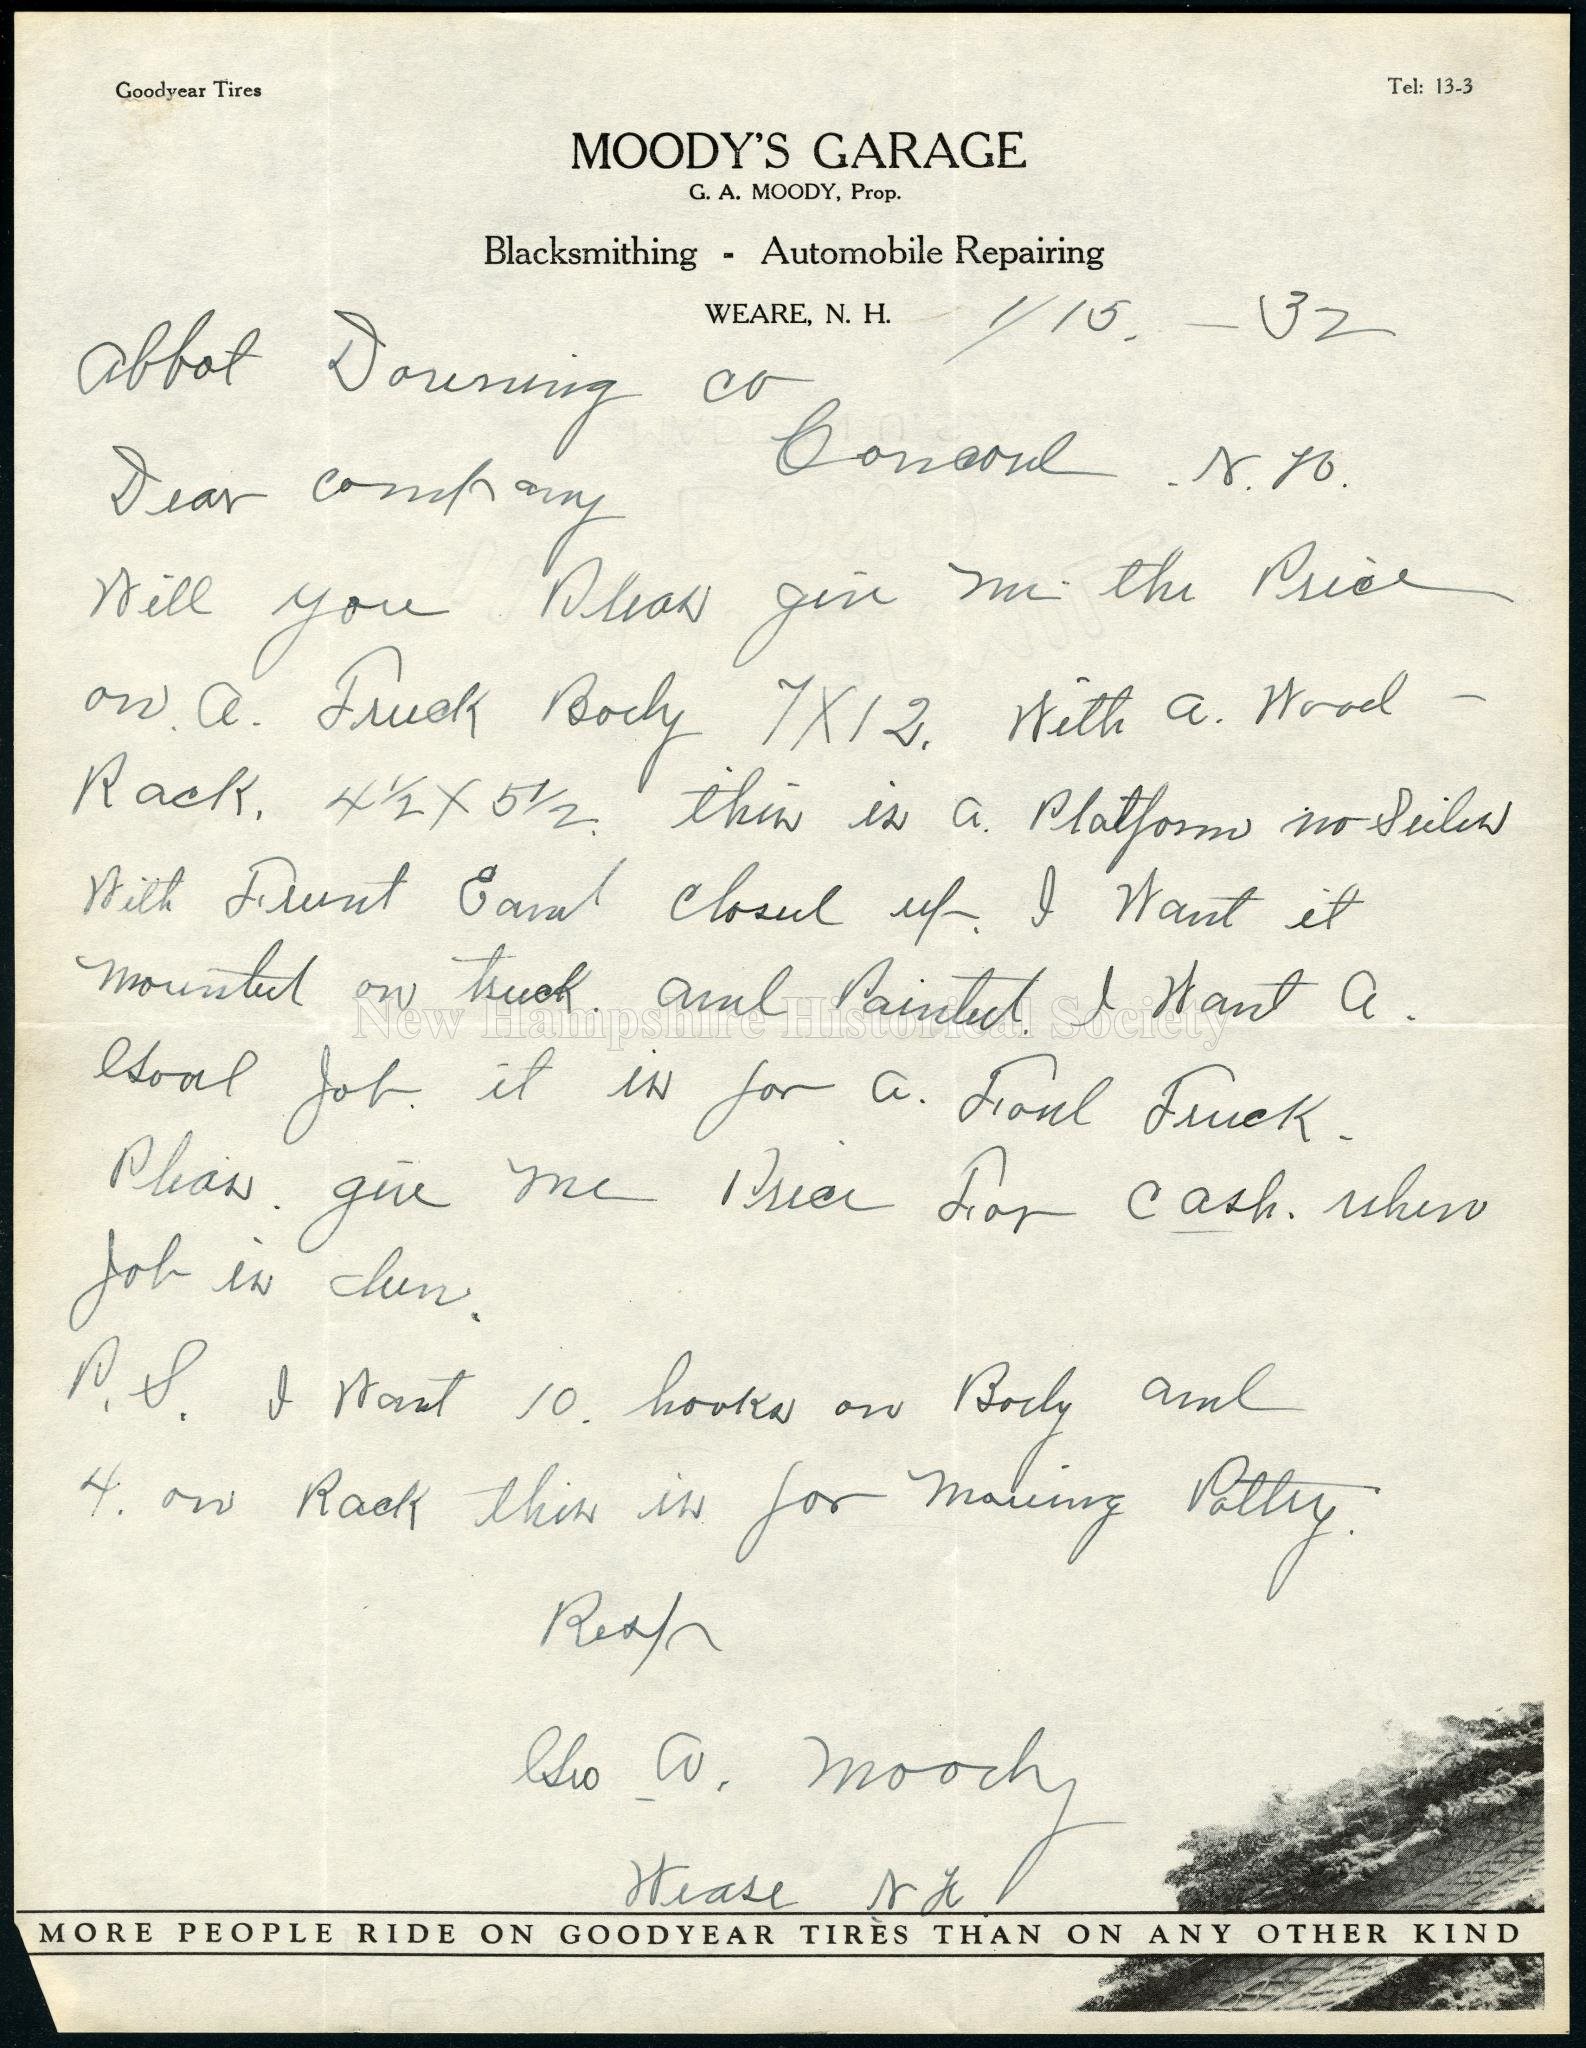 Goodyear Tires
Tel: 13-3
MOODY'S GARAGE
G. A. MOODY, Prop.
Blacksmithing - Automobile Repairing
WEARE, N. H. 1/15. - 32
Abbot Downing co
Concord . N. H.
Dear company
Will you Pleas give me the Price
on. a. Truck Body 7X12. With a. Wood -
Rack. 4½ X 5½. this is a. Platform no Sides
With Frunt Eand closed up. I Want it
mounted on truck. and Painted. I Want a.
Good Job. it is for a. Ford Truck.
Pleas. give me Price For cash. when
Job is dun.
P. S. I Want 10. hooks on Body and
4. on Rack this is for moving Poltry.
Resp
Geo A. Moody
Weare N H
New Hampshire Historical Society
MORE PEOPLE RIDE ON GOODYEAR TIRES THAN ON ANY OTHER KIND